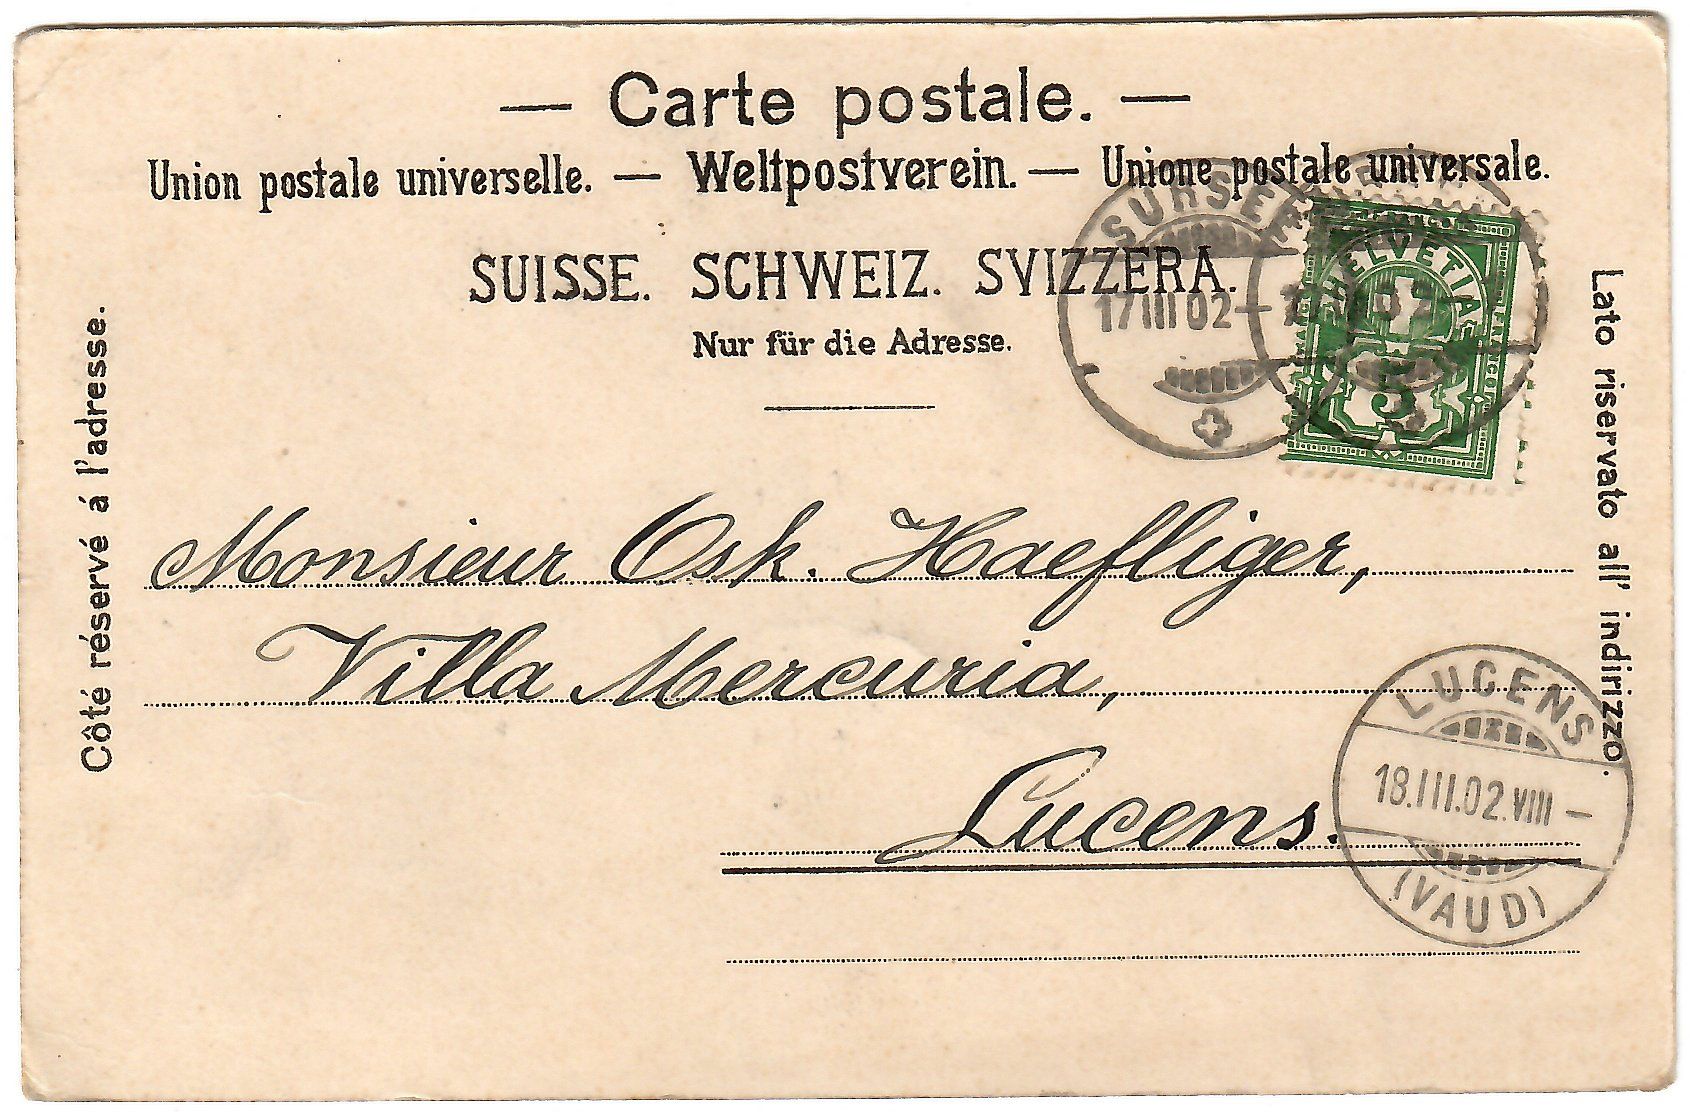 — Carte postale. —
Union postale universelle. — Weltpostverein. — Unione postale universale.
SUISSE. SCHWEIZ. SVIZZERA.
Nur für die Adresse.
Côté réservé á l'adresse.
Lato riservato all' indirizzo.
SURSEE
17 III 02 -
HELVETIA
5
Monsieur Osk. Haefliger,
Villa Mercuria,
Lucens.
LUCENS
18.III.02.VIII –
(VAUD)